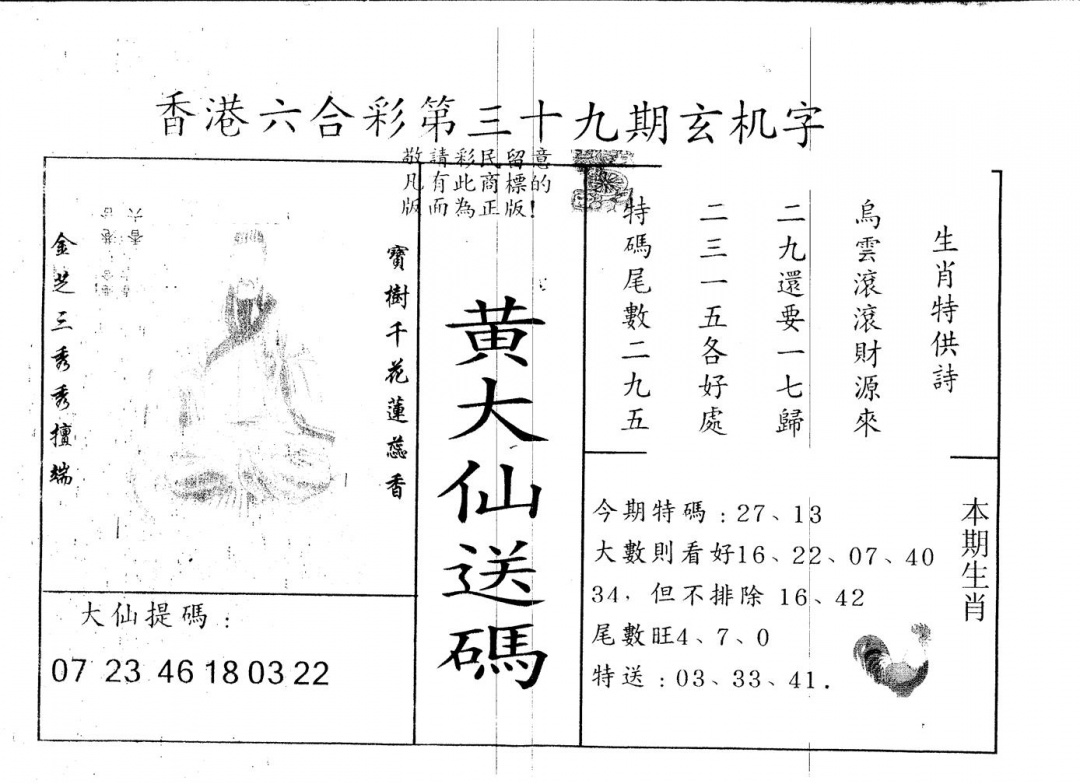 香港六合彩第三十九期玄机字
敬請彩民留意
凡有此商標的
版面為正版!
寶樹千花蓮蕊香
金芝三秀秀擅端
大仙提碼:
07 23 46 18 03 22
黄大仙送碼
生肖特供詩
烏雲滾滾財源來
二九還要一七歸
二三一五各好處
特碼尾數二九五
本期生肖
今期特碼:27、13
大數則看好16、22、07、40
34,但不排除 16、42
尾數旺4、7、0
特送:03、33、41.